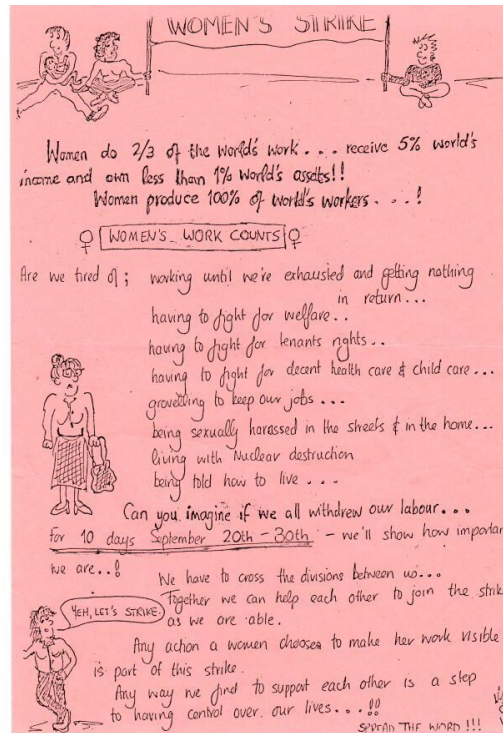 WOMEN'S STRIKE
Women do 2/3 of the world's work... receive 5% world's
income and own less than 1% world's assets!!
Women produce 100% of world's workers...!
♀ WOMEN'S WORK COUNTS ♀
Are we tired of; working until we're exhausted and getting nothing
in return...
having to fight for welfare..
having to fight for tenants rights..
having to fight for decent health care & child care...
grovelling to keep our jobs...
being sexually harassed in the streets & in the home...
living with Nuclear destruction
being told how to live...
Can you imagine if we all withdrew our labour...
for 10 days September 20th - 30th - we'll show how important
we are..!
We have to cross the divisions between us...
Together we can help each other to join the strik
YEH, LET'S STRIKE.
as we are able.
Any action a women chooses to make her work visible
is part of this strike.
Any way we find to support each other is a step
to having control over our lives...!!
SPREAD THE WORD!!!